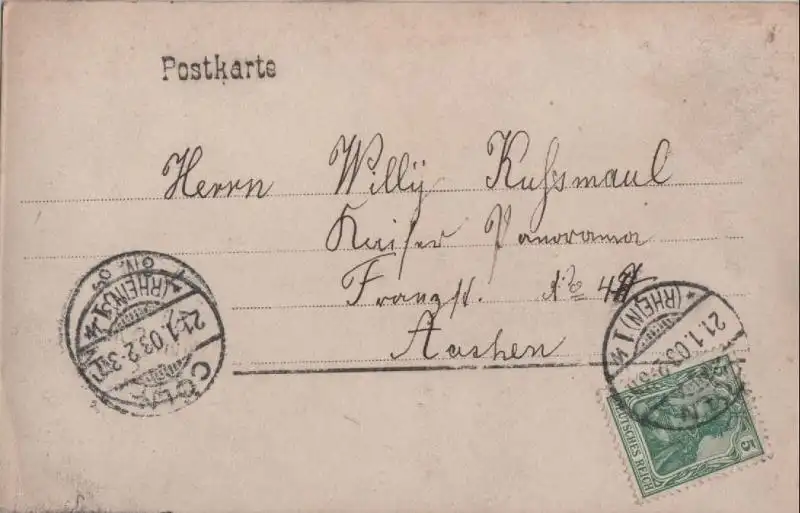 Postkarte
Herrn Willy Kußmaul
Kaiser Panorama
Franzst. No 4
Aachen
CÖLN (RHEIN) 1 W
21.1.03.2-3N
(RHEIN) 1 W
21.1.03
DEUTSCHES REICH
5
5